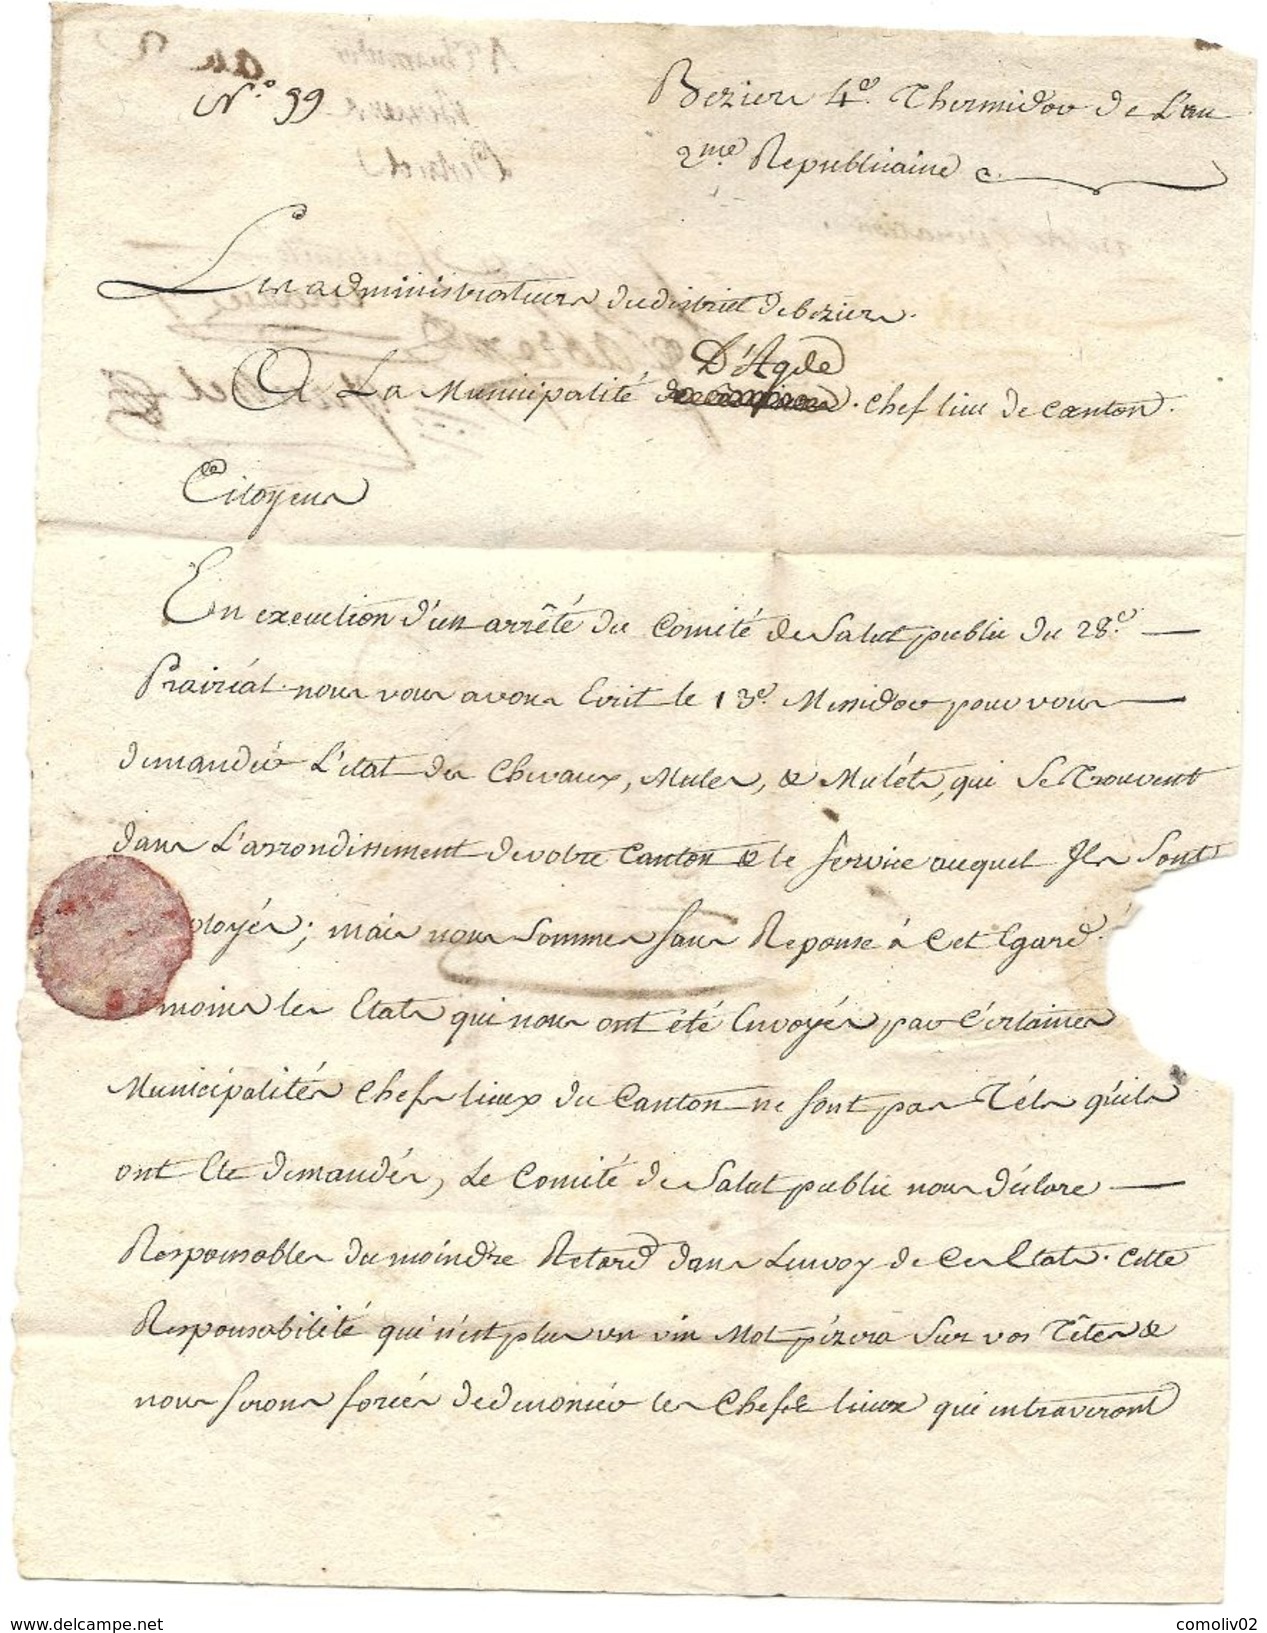 N.º 99
Beziers 4.e Thermidor de L'an
2.me Republicaine
Les administrateurs du district de beziers.
A La Municipalité D'Agde chef lieu de Canton.
Citoyens
En execution d'un arrêté du Comité de Salut public du 28.e
Prairéal. nous vous avons Ecrit le 13.e Messidor pour vous
demander L'etat des Chevaux, Mules, & Muléts, qui se Trouvent
dans L'arrondissement de votre Canton & le service auquel Ils sont
ployés; mais nous sommes sans Reponse à Cet Egard.
moins les Etats qui nous ont été Envoyés par Cértaines
Municipalités Chefs lieux du Canton ne sont pas Téls qu'ils
ont Eté demandés, Le Comité de Salut public nous déclare
Responsables du moindre Retard dans Lenvoy de Ces Etats. Cette
Responsabilité qui n'est plus un vin Mot pézera sur vos Têtes &
nous serons forcés de denoncer les Chefs lieux qui entraveront
www.delcampe.net
comoliv02